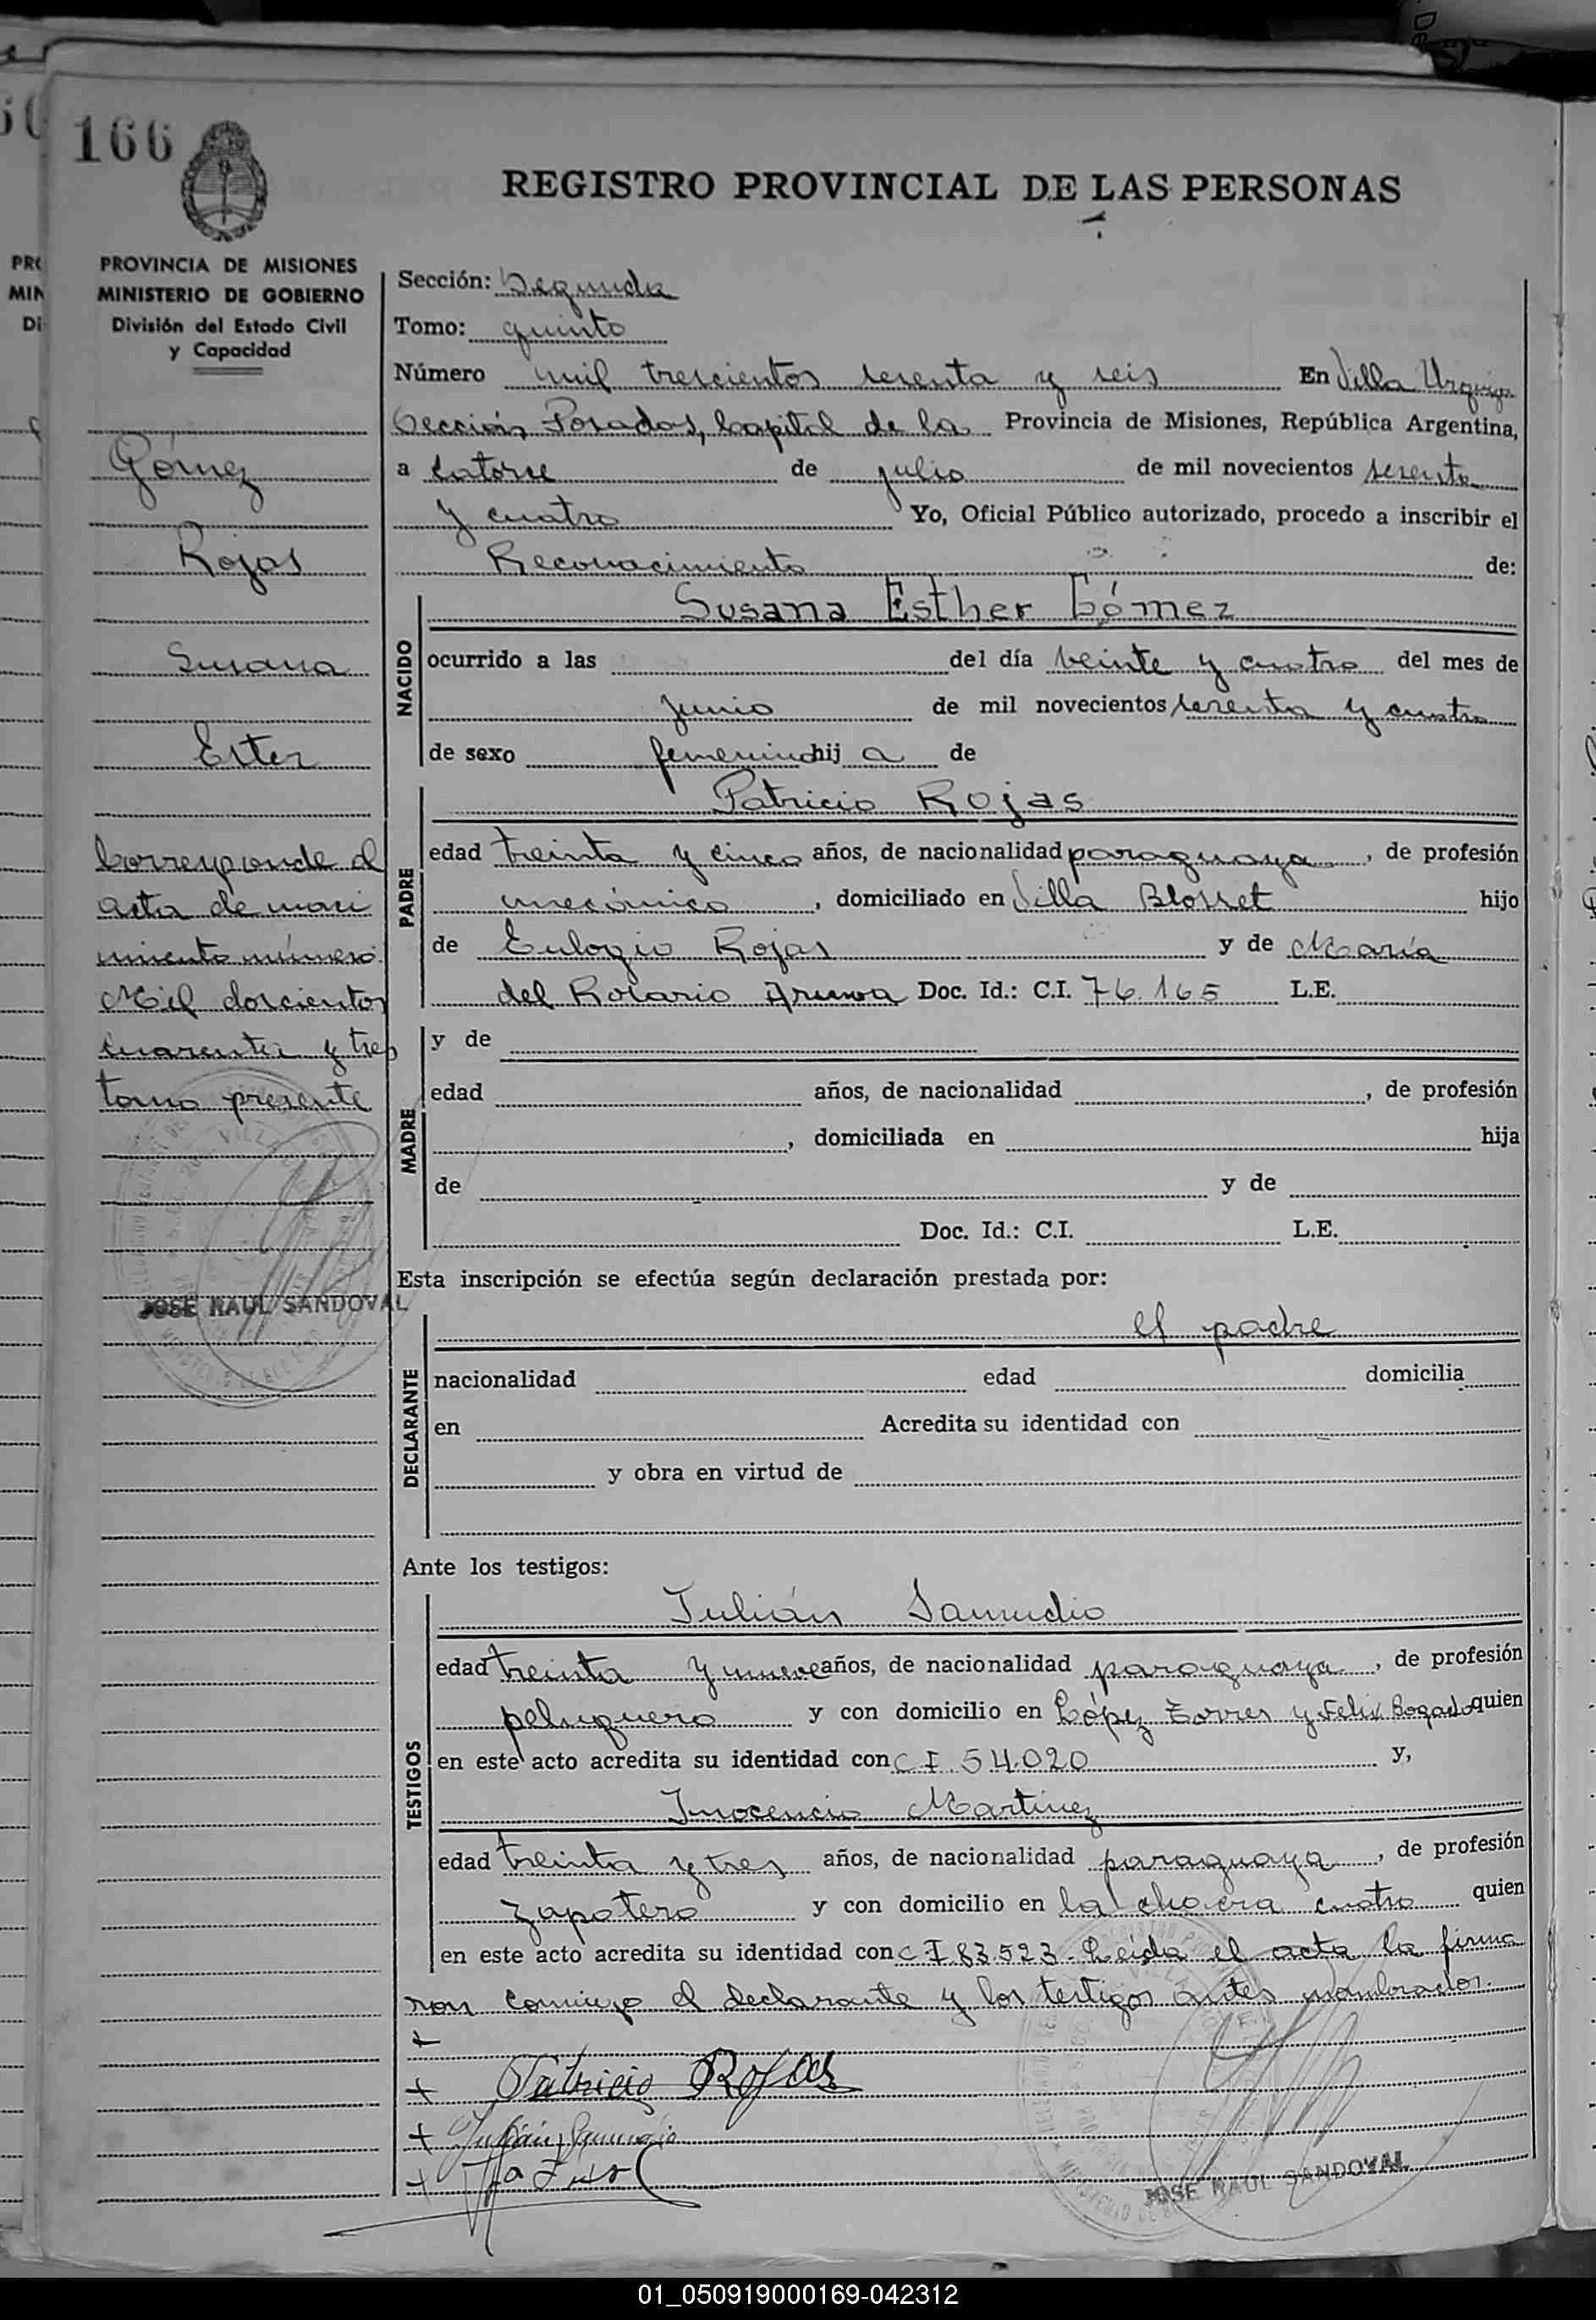 166
REGISTRO PROVINCIAL DE LAS PERSONAS
PROVINCIA DE MISIONES
MINISTERIO DE GOBIERNO
División del Estado Civil
y Capacidad
Gómez
Rojas
Susana
Ester
Corresponde al
acta de naci
miento número
Mil doscientos
cuarenta y tres
tomo presente
JOSE RAUL SANDOVAL
Sección: Segunda
Tomo: quinto
Número mil trescientos sesenta y seis En Villa Urquiza
Sección Posadas, Capital de la Provincia de Misiones, República Argentina,
a Catorce de julio de mil novecientos sesenta
y cuatro Yo, Oficial Público autorizado, procedo a inscribir el
Reconocimiento de:
NACIDO
Susana Esther Gómez
ocurrido a las del día veinte y cuatro del mes de
junio de mil novecientos sesenta y cuatro
de sexo femenino hij a de
PADRE
Patricio Rojas
edad treinta y cinco años, de nacionalidad paraguaya, de profesión
mecánico, domiciliado en Villa Blosset hijo
de Eulogio Rojas y de María
del Rosario Doc. Id.: C.I. 76.165 L.E.
MADRE
y de
edad años, de nacionalidad , de profesión
, domiciliada en hija
de y de
Doc. Id.: C.I. L.E.
Esta inscripción se efectúa según declaración prestada por:
DECLARANTE
el padre
nacionalidad edad domicilia
en Acredita su identidad con
y obra en virtud de
Ante los testigos:
TESTIGOS
Julián Samudio
edad treinta y nueve años, de nacionalidad paraguaya, de profesión
peluquero y con domicilio en López Torres y Felix Bogado quien
en este acto acredita su identidad con C I 54.020 y,
Inocencio Martinez
edad treinta y tres años, de nacionalidad paraguaya, de profesión
zapatero y con domicilio en la chacra cuatro quien
en este acto acredita su identidad con C I 83.523 - Leída el acta la firma
ron conmigo el declarante y los testigos antes nombrados.
Patricio Rojas
Julián Samudio
JOSE RAUL SANDOVAL
01_050919000169-042312